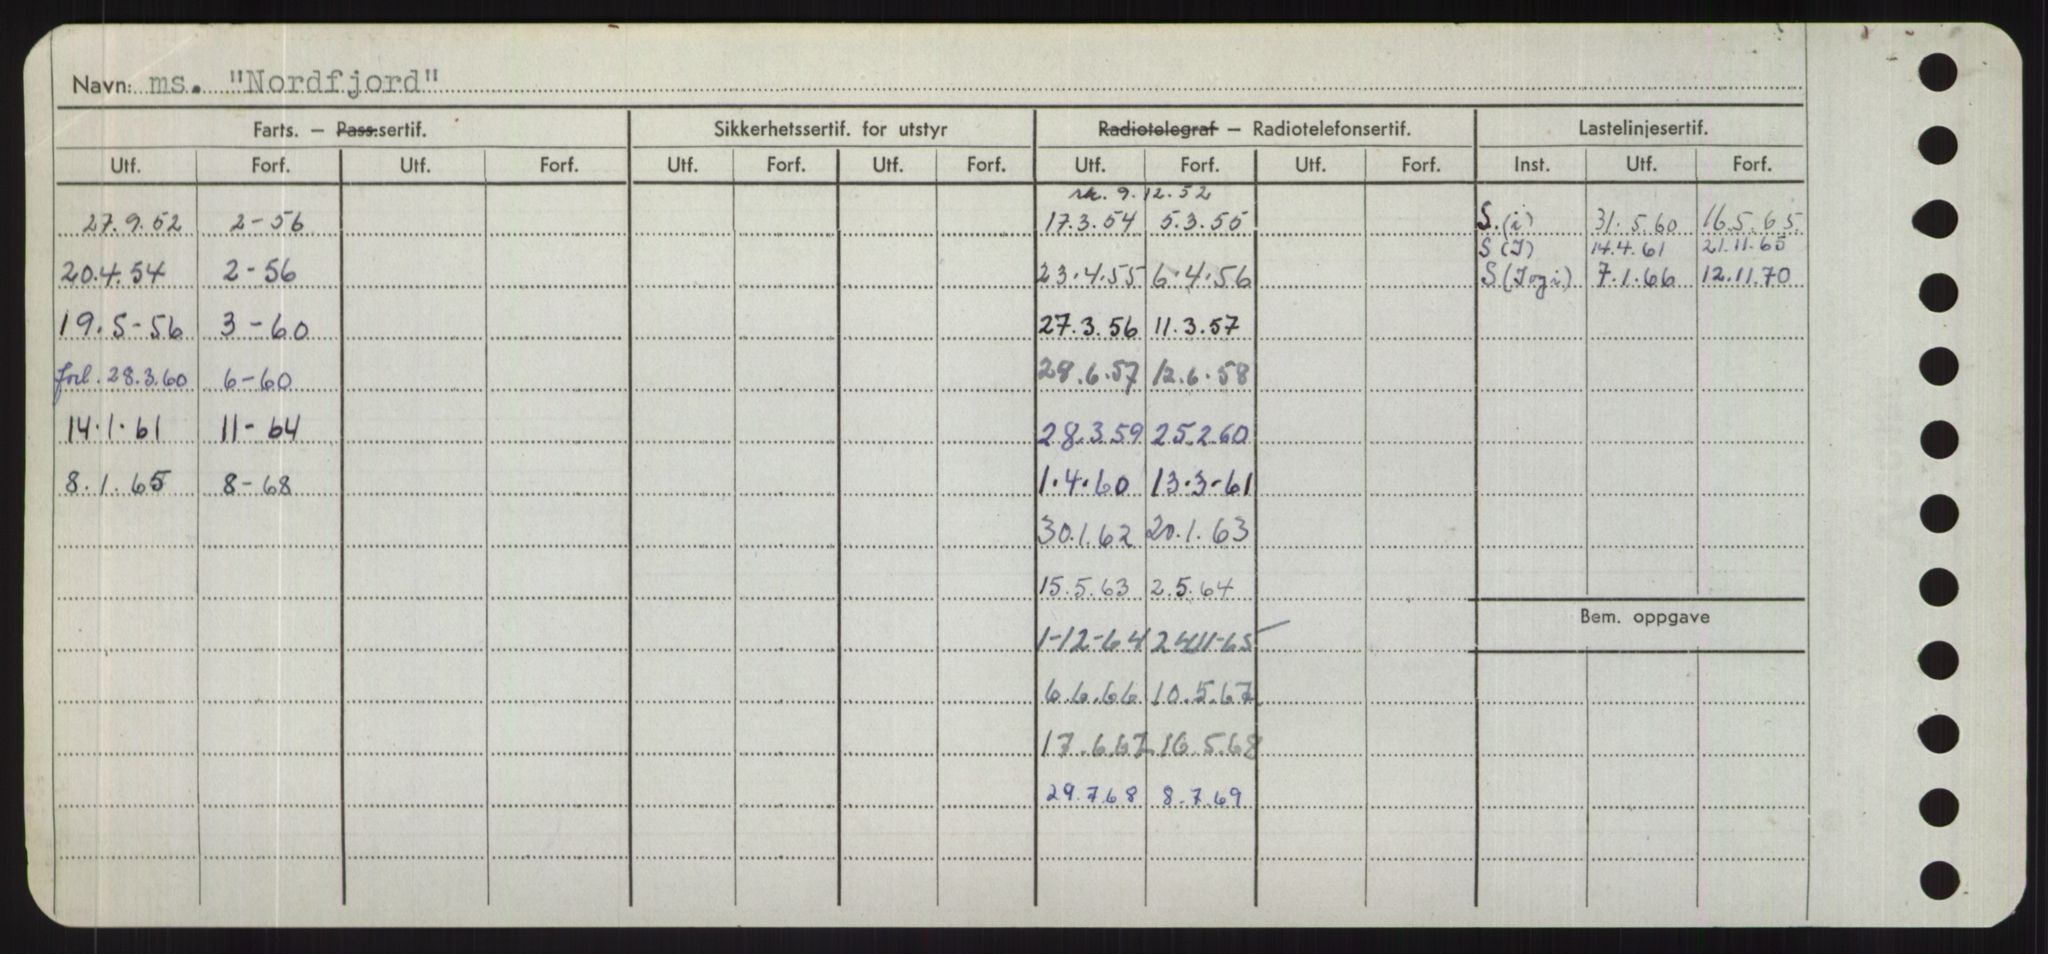 Navn: ms. "Nordfjord"
Farts. – Pass.sertif. Sikkerhetssertif. for utstyr Radiotelegraf – Radiotelefonsertif. Lastelinjesertif.
Utf. Forf. Utf. Forf. Utf. Forf. Utf. Forf. Utf. Forf. Utf. Forf. Inst. Utf. Forf.
9.12.52
27.9.52 2-56 17.3.54 5.3.55 S.(i) 31.5.60 16.5.65.
S(I) 14.4.61 21.11.65
20.4.54 2-56 23.4.55 6.4.56 S(I og i) 7.1.66 12.11.70
19.5-56 3-60 27.3.56 11.3.57
forl. 28.3.60 6-60 28.6.57 12.6.58
14.1.61 11-64 28.3.59 25.2.60
8.1.65 8-68 1.4.60 13.3-61
30.1.62 20.1.63
15.5.63 2.5.64
Bem. oppgave
1-12-64 24.11-65
6.6.66 10.5.67
17.6.67 16.5.68
29.7.68 8.7.69